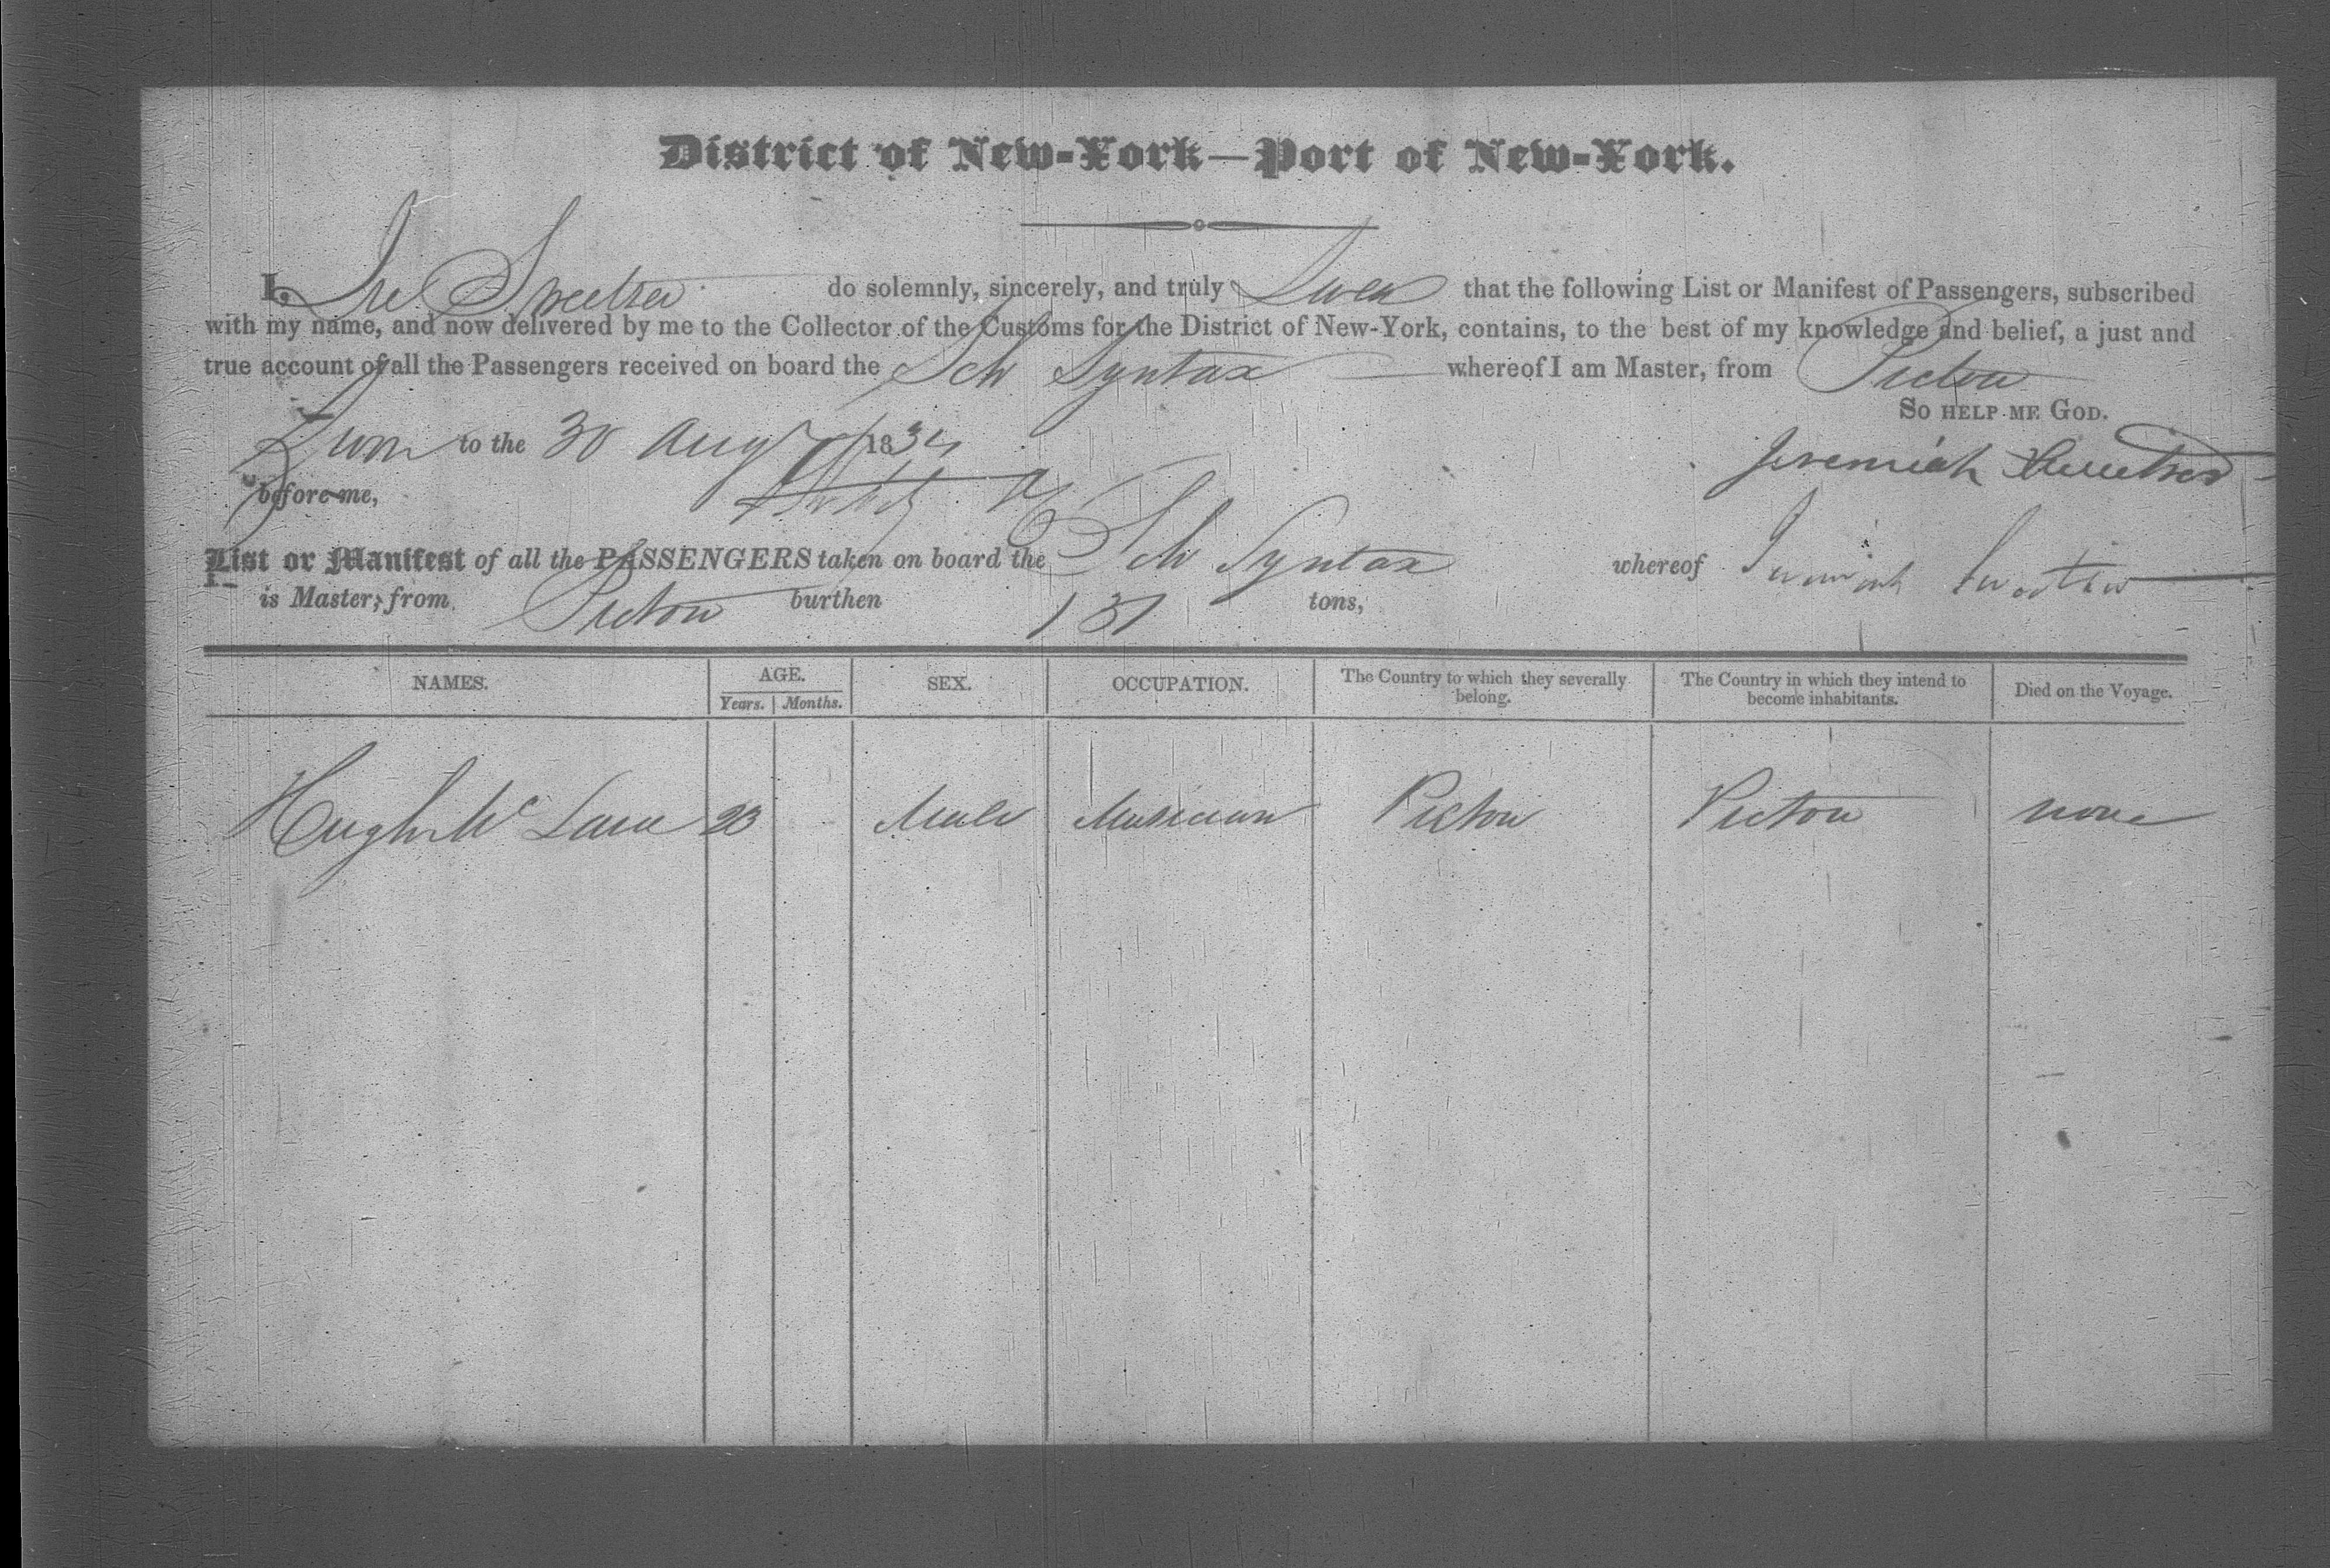 District of New-York—Port of New-York.
I, Jre Sweetser do solemnly, sincerely, and truly Swear that the following List or Manifest of Passengers, subscribed
with my name, and now delivered by me to the Collector of the Customs for the District of New-York, contains, to the best of my knowledge and belief, a just and
true account of all the Passengers received on board the Sch Syntax whereof I am Master, from Pictou
So help me God.
Sworn to the 30 Aug 1834
Jeremiah Sweetser
before me,
List or Manifest of all the PASSENGERS taken on board the Sch Syntax whereof Jeremiah Sweetser
is Master, from Pictou burthen 131 tons,
NAMES. AGE. SEX. OCCUPATION. The Country to which they severally belong. The Country in which they intend to become inhabitants. Died on the Voyage.
Years. Months.
Hugh Mc Lane 23 Male Musician Pictou Pictou none